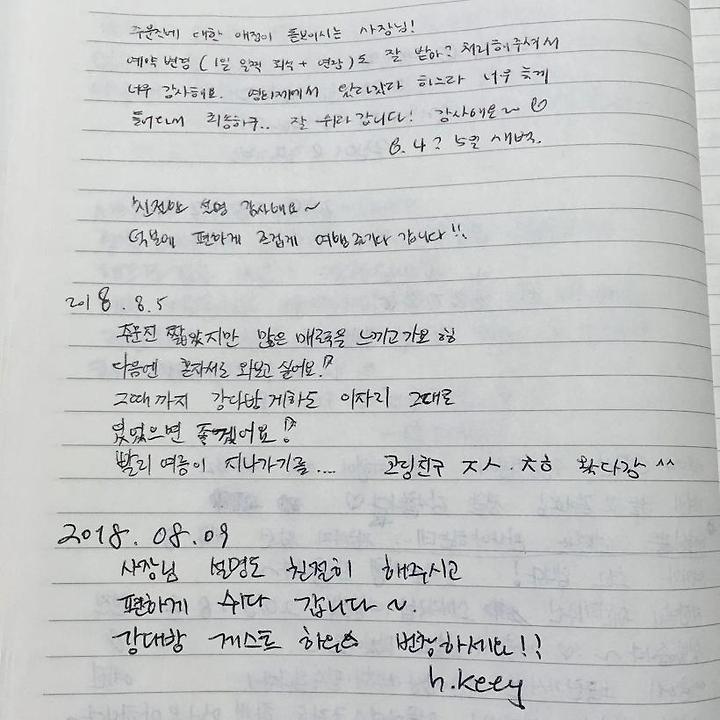 주문진에 대한 애정이 돋보이시는 사장님!
예약 변경 (1일 일찍 퇴실 + 연장)도 잘 받아? 처리해주셔서
너무 감사해요. 왔다갔다 하느라 너무 늦게
들어다녀 죄송하구.. 잘 쉬다 갑니다! 감사해요~
8. 4 ? 5일 새벽.
친절한 설명 감사해요~
덕분에 편하게 즐겁게 여행 즐기다 갑니다!!
2018.8.5
주문진 짧았지만 많은 매력을 느끼고가요 힝
다음엔 혼자서도 와보고 싶어요!
그때까지 강다방 게하도 이자리 그대로
있었으면 좋겠어요!
빨리 여름이 지나가기를.... 고딩친구 ㅈㅅ.ㅊㅎ 왔다감 ^^
2018.08.09
사장님 설명도 친절히 해주시고
편하게 쉬다 갑니다~.
강대방 게스트 하우스 번창하세요!!
h.keey